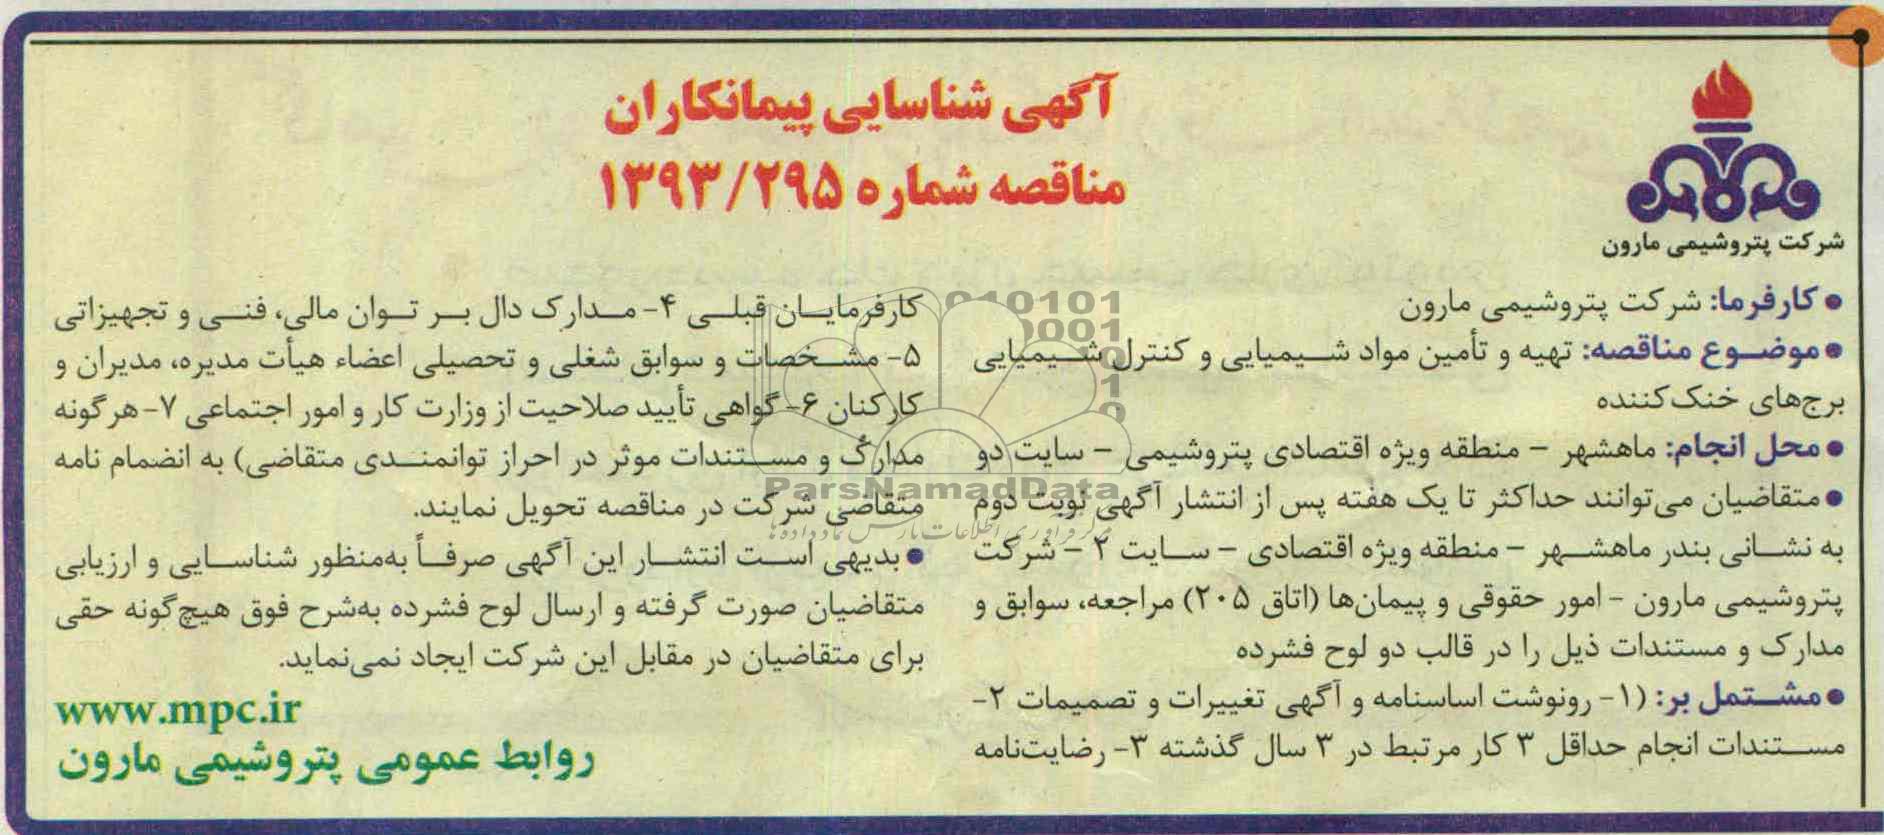 آگهی شناسایی پیمانکاران
مناقصه شماره ۱۳۹۳/۲۹۵
شرکت پتروشیمی مارون
● کارفرما: شرکت پتروشیمی مارون
● موضوع مناقصه: تهیه و تأمین مواد شیمیایی و کنترل شیمیایی
برج‌های خنک‌کننده
● محل انجام: ماهشهر – منطقه ویژه اقتصادی پتروشیمی – سایت دو
● متقاضیان می‌توانند حداکثر تا یک هفته پس از انتشار آگهی نوبت دوم
به نشانی بندر ماهشهر – منطقه ویژه اقتصادی – سایت ۲ – شرکت
پتروشیمی مارون – امور حقوقی و پیمان‌ها (اتاق ۲۰۵) مراجعه، سوابق و
مدارک و مستندات ذیل را در قالب دو لوح فشرده
● مشتمل بر: (۱- رونوشت اساسنامه و آگهی تغییرات و تصمیمات ۲-
مستندات انجام حداقل ۳ کار مرتبط در ۳ سال گذشته ۳- رضایت‌نامه
کارفرمایان قبلی ۴- مدارک دال بر توان مالی، فنی و تجهیزاتی
۵- مشخصات و سوابق شغلی و تحصیلی اعضاء هیأت مدیره، مدیران و
کارکنان ۶- گواهی تأیید صلاحیت از وزارت کار و امور اجتماعی ۷- هرگونه
مدارک و مستندات موثر در احراز توانمندی متقاضی) به انضمام نامه
متقاضی شرکت در مناقصه تحویل نمایند.
● بدیهی است انتشار این آگهی صرفاً به‌منظور شناسایی و ارزیابی
متقاضیان صورت گرفته و ارسال لوح فشرده به‌شرح فوق هیچ‌گونه حقی
برای متقاضیان در مقابل این شرکت ایجاد نمی‌نماید.
www.mpc.ir
روابط عمومی پتروشیمی مارون
ParsNamadData